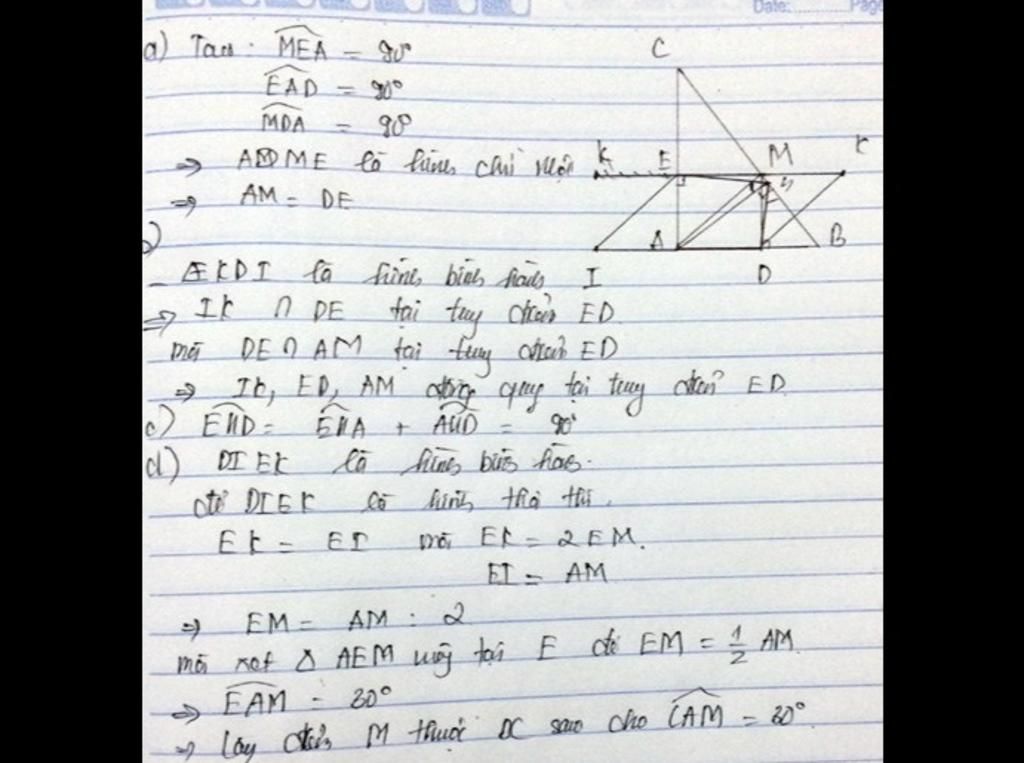 Date: Page
a) Ta có: MEA = 90°
EAD = 90°
MDA = 90°
⇒ ADME là hình chữ nhật
⇒ AM = DE
b)
EKDI là hình bình hành
⇒ IK ∩ DE tại trung điểm ED
mà DE ∩ AM tại trung điểm ED
⇒ IK, ED, AM đồng quy tại trung điểm ED
c) EHD = EHA + AHD = 90°
d) DIEK là hình bình hành.
để DIEK là hình thoi thì.
EK = EI mà EK = 2EM.
EI = AM
⇒ EM = AM : 2
mà xét Δ AEM vuông tại E để EM = 1/2 AM.
⇒ EAM = 30°
⇒ Lấy điểm M thuộc BC sao cho CAM = 30°.
C
K E M K
H
A B
I D